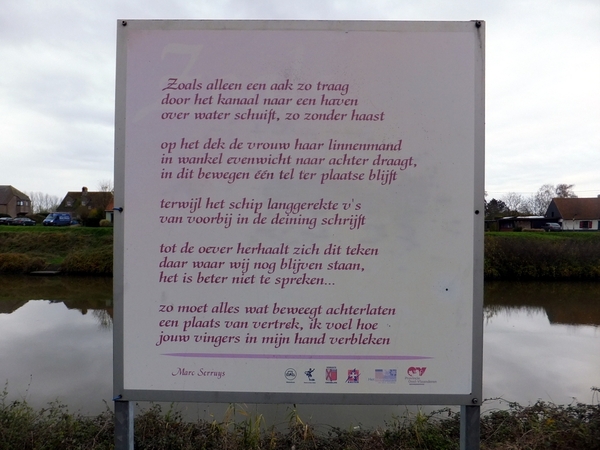 Zoals alleen een aak zo traag
door het kanaal naar een haven
over water schuift, zo zonder haast
op het dek de vrouw haar linnenmand
in wankel evenwicht naar achter draagt,
in dit bewegen één tel ter plaatse blijft
terwijl het schip langgerekte v's
van voorbij in de deining schrijft
tot de oever herhaalt zich dit teken
daar waar wij nog blijven staan,
het is beter niet te spreken...
zo moet alles wat beweegt achterlaten
een plaats van vertrek, ik voel hoe
jouw vingers in mijn hand verbleken
Marc Serruys